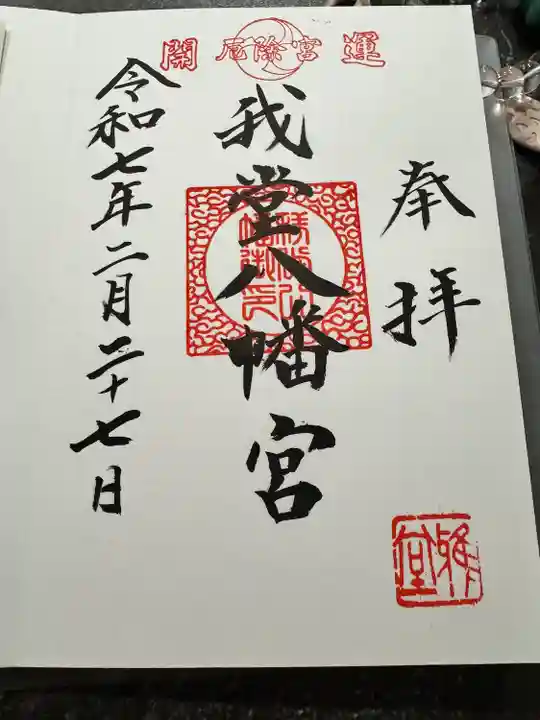 開運
厄除宮
奉拝
我堂八幡宮
令和七年二月二十七日
雅堂